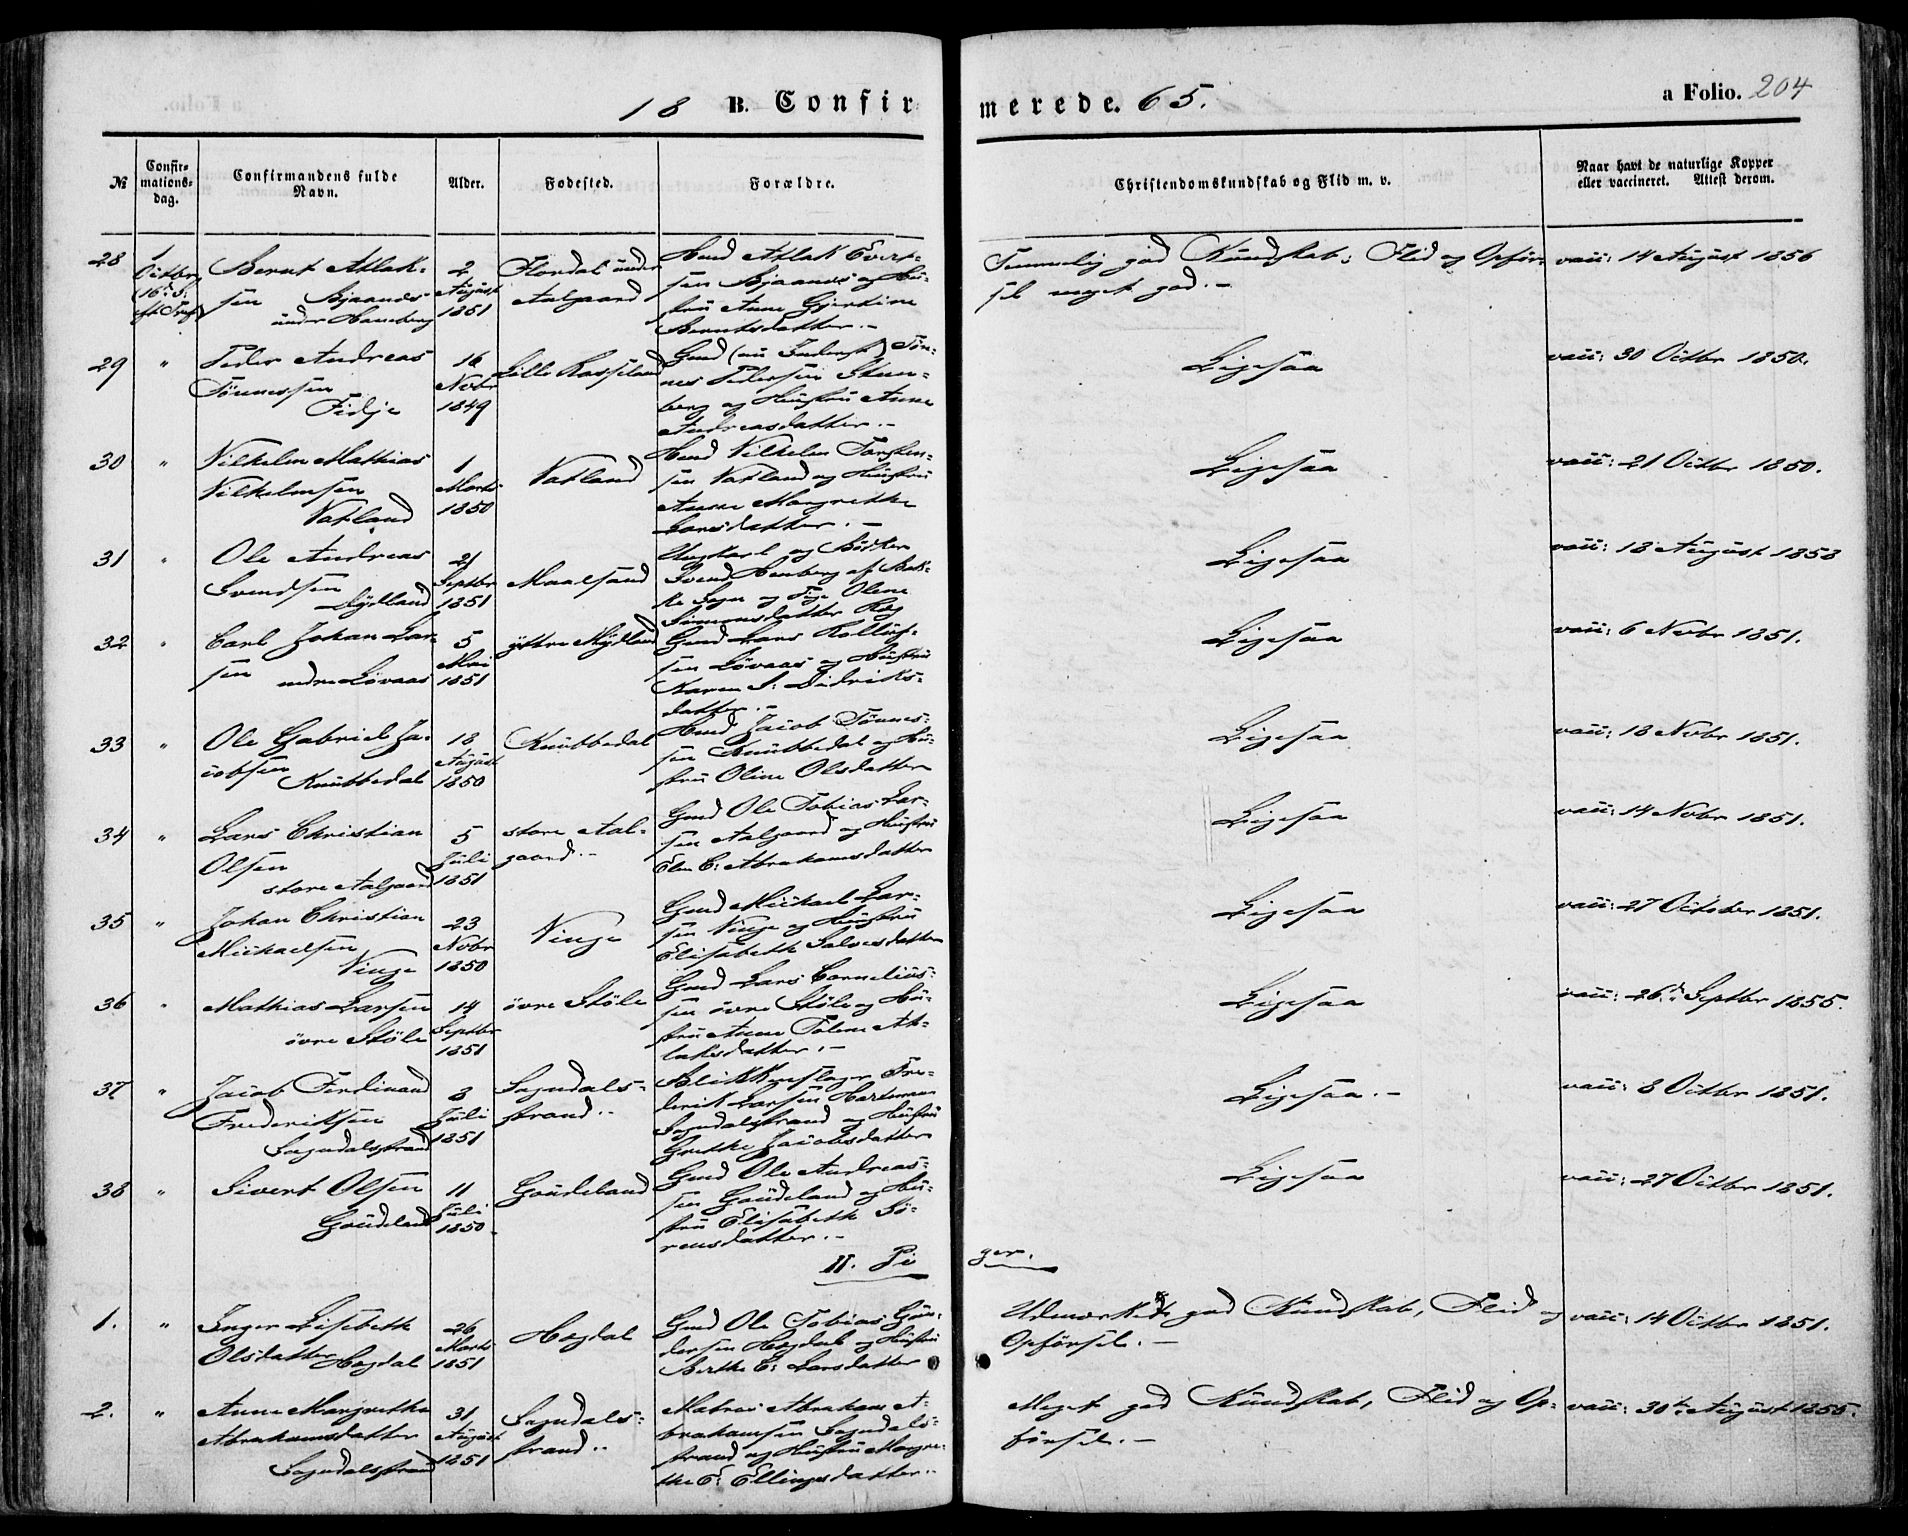 18 B. Confirmerede. 65.
a Folio. 204
№
Confir-
mations-
dag.
Confirmandens fulde
Navn.
Alder.
Fodested.
Forældre.
Christendomskundskab og Flid m. v.
Naar havt de naturlige Kopper
eller vaccineret. Attest derom.
28
1
Octbr
(16d S.
ft. Tref)
Bernt Atlak-
sen Bjaanes
under Haneberg
2
August
1851
Flordal under
Aalgaard
Hmd Atlak Evert-
sen Bjaanes og Hu-
stru Anne Gjertine
Berntsdatter.-
Temmelig god Kundskab; Flid og Opför-
sel meget god.-
vacc: 14 August 1856
29
"
Peder Andreas
Tönnessen
Fidje
16
Novbr
1849
Lille Rosseland
Gmd (nu Inderst) Tön-
nes Pedersen Skun-
berg og Hustru Anne
Andreasdatter.-
Ligesaa
vacc: 30 Octbr 1850.
30
"
Vilhelm Mathias
Vilhelmsen
Vatland
1
Marts
1850
Vatland
Hmd Vilhelm Torsten-
sen Vatland og Hustru
Anne Margrethe
Larsdatter.-
Ligesaa
vacc: 21 Octbr 1850.
31
"
Ole Andreas
Svendsen
Dydland
21
Septbr
1851
Maalsund
Ungkarl og Bödker
Svend Henberg af Bak-
ke Sogn og Pige Olene
Simonsdatter Ræg
Ligesaa
vacc: 18 August 1853
32
"
Carl Johan Lar-
sen
nedre Lövaas
5
Mai
1851
yttre Mydland
Gmd Lars Rolluf-
sen Lövaas og Hustru
Karen S: Didriks-
datter.-
Ligesaa
vacc: 6 Novbr 1851.
33
"
Ole Gabriel Ja-
cobsen
Knubbedal
18
August
1850
Knubbedal
Hmd Jacob Tönnes-
sen Knubbedal og Hu-
stru Oline Olsdatter
Ligesaa
vacc: 18 Novbr 1851.
34
"
Lars Christian
Olsen
store Aalgaard
5
Juli
1851
store Aal-
gaard.-
Gmd Ole Tobias Lar-
sen Aalgaard og Hustru
Elen C: Abrahamsdatter
Ligesaa
vacc: 14 Novbr 1851.
35
"
Johan Christian
Michaelsen
Vinge
23
Novbr
1850
Vinge
Gmd Michael Lar-
sen Vinge og Hustru
Elisabeth Salvesdatter
Ligesaa
vacc: 27 October 1851.
36
"
Mathias Larsen
övre Stöle
14
Septbr
1851
övre Stöle
Gmd Lars Cornelius-
sen övre Stöle og Hu-
stru Anne Tolene At-
laksdatter.-
Ligesaa
vacc: 26d Septbr 1855.
37
"
Jacob Ferdinand
Frederiksen
Sogndalsstrand
3
Juli
1851
Sogndals-
strand.-
Blikkenslager Fre-
derik Larsen Hartman
Sogndalsstrand og Hustru
Grethe Jacobsdatter
Ligesaa.-
vacc: 8 Octbr 1851.
38
"
Sivert Olsen
Goudeland
11
Juli
1850
Goudeland
Gmd Ole Andreas-
sen Goudeland og Hu-
stru Elisabeth Sö-
rensdatter.-
Ligesaa
vacc: 27 Octbr 1851.
II. Piger.
1.
"
Inger Lisebeth
Olsdatter Hogdal
26
Marts
1851
Hogdal
Gmd Ole Tobias Gun-
dersen Hogdal og Hustru
Berthe C: Larsdatter
Udmærket god Kundskab, Flid og
Opförsel.-
vacc: 14 Octbr 1851.
2.
"
Anne Margrethe
Abrahamsdatter
Sogndalsstrand
31
August
1851
Sogndals-
strand.-
Matros Abraham A-
brahamsen Sogndals-
strand og Hustru Margre-
the E: Ellingsdatter.-
Meget god Kundskab, Flid og Op-
försel.-
vacc: 30te August 1855.